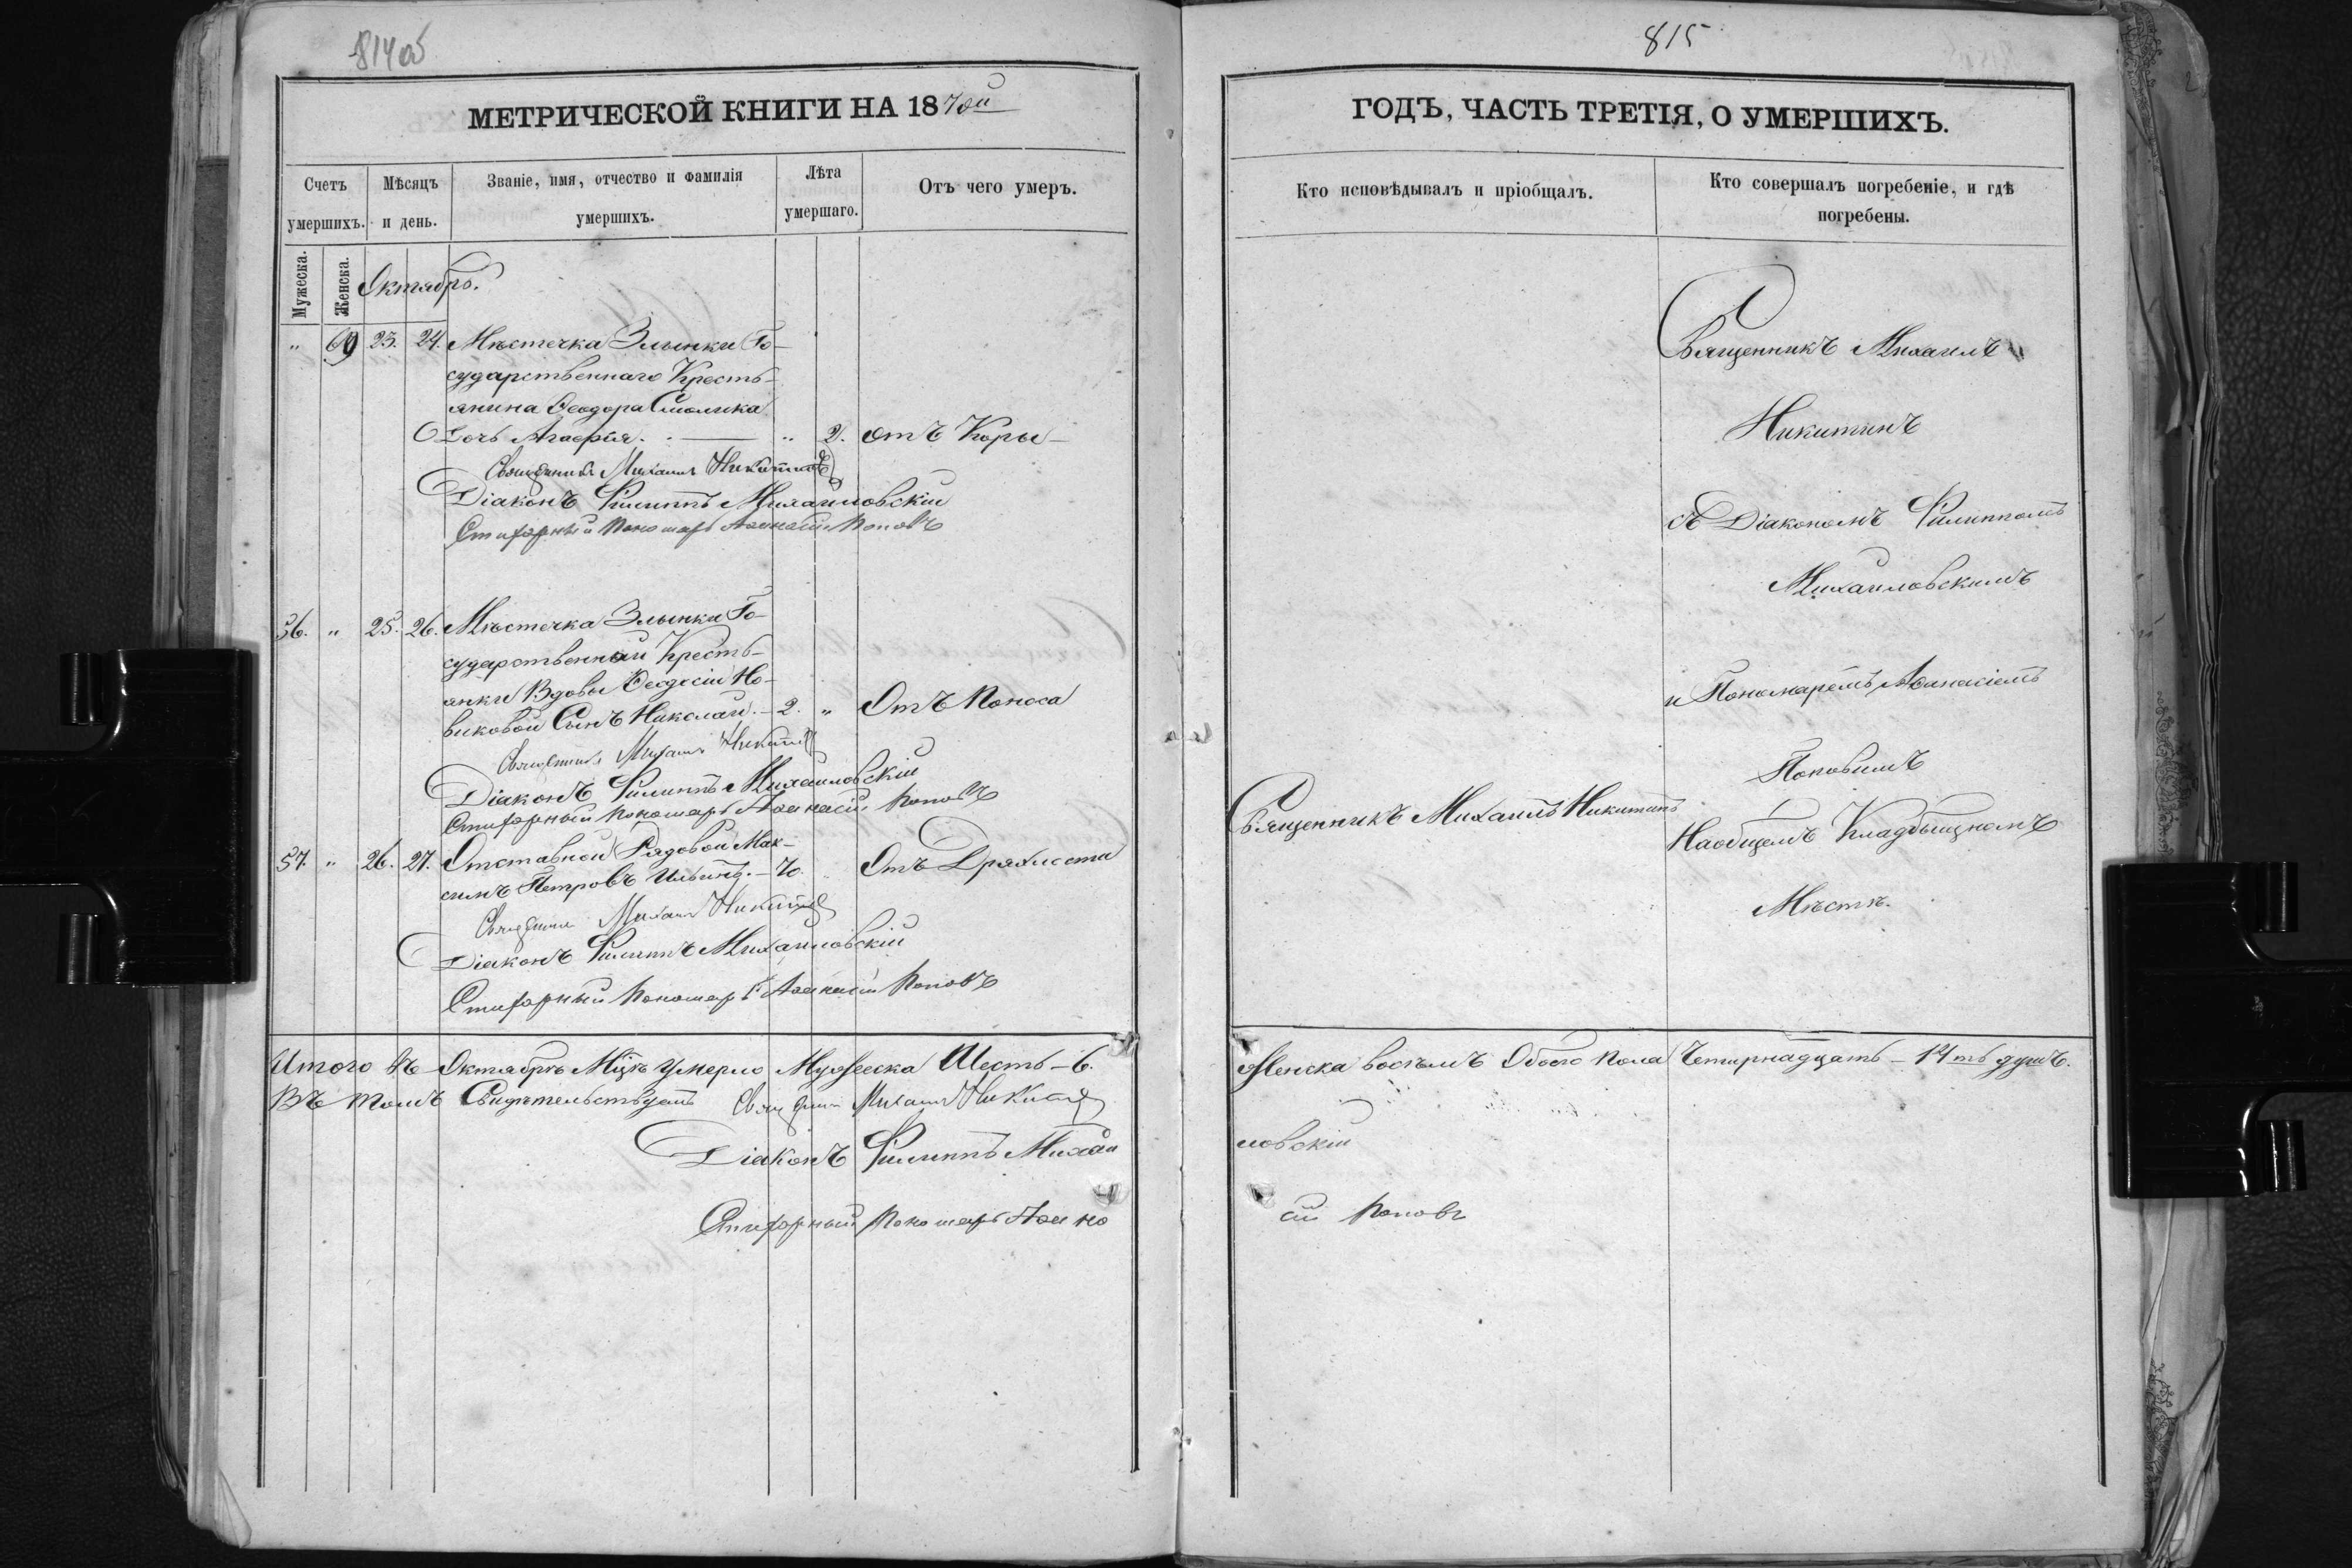 814об
МЕТРИЧЕСКОЙ КНИГИ НА 1870й
Счетъ умершихъ.
Мѣсяцъ и день.
Званіе, имя, отчество и фамилія умершихъ.
Лѣта умершаго.
Отъ чего умеръ.
Мужеска.
Женска.
Октябрь.
" 69 23. 24. Мѣстечка Злынки Го-
сударственнаго Кресть-
янина Ѳеодора Смолика
Дочь Агафія. — " 2. отъ Коры
Священникъ Михаилъ Никитинъ
Діаконъ Филиппъ Михайловскій
Стихарный Пономарь Аѳанасій Поповъ
56. " 25. 26. Мѣстечка Злынки Го-
сударственной Кресть-
янки Вдовы Ѳеодосіи Но-
виковой Сынъ Николай. — 2. " Отъ Поноса
Священникъ Михаилъ Никитинъ
Діаконъ Филиппъ Михайловскій
Стихарный Пономарь Аѳанасій Поповъ
57. " 26. 27. Отставной Рядовой Мак-
симъ Петровъ Ильинъ. — 70. Отъ Дряхлости
Священникъ Михаилъ Никитинъ
Діаконъ Филиппъ Михайловскій
Стихарный Пономарь Аѳанасій Поповъ
Итого въ Октябрѣ Мцѣ Умерло Мужеска Шесть — 6.
Въ томъ Свидѣтельствуемъ Священникъ Михаилъ Никитинъ
Діаконъ Филиппъ Михай
Стихарный Пономарь Аѳана
815
ГОДЪ, ЧАСТЬ ТРЕТІЯ, О УМЕРШИХЪ.
Кто исповѣдывалъ и пріобщалъ.
Кто совершалъ погребеніе, и гдѣ
погребены.
Священникъ Михаилъ
Никитинъ
съ Діакономъ Филиппомъ
Михайловскимъ
и Пономаремъ Аѳанасіемъ
Поповимъ
Священникъ Михаилъ Никитинъ
На общемъ Кладбищномъ
Мѣстѣ.
Женска восѣмъ Обоего Пола Четирнадцать — 14ть душъ.
ловскій
сій Поповъ